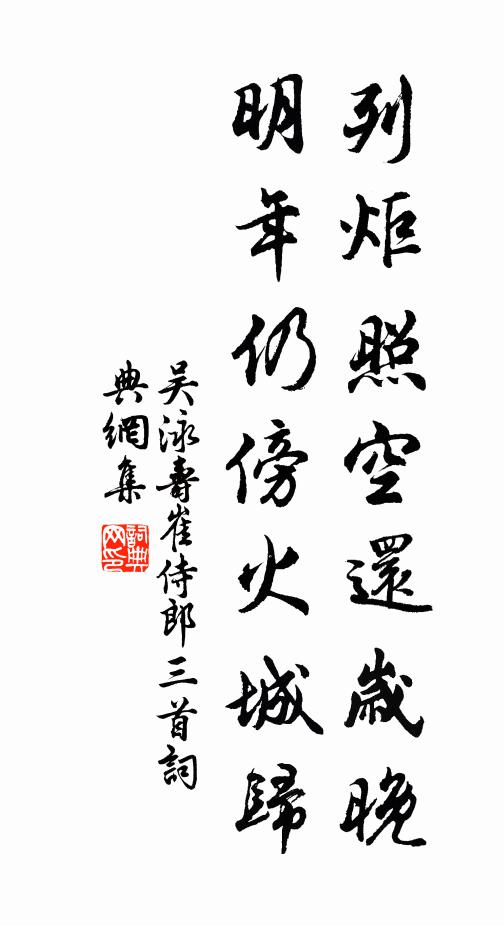 列炬照空還歲晚
明年仍傍火城歸
吳泳壽崔侍郎三首詞
典網集
詞典
网印